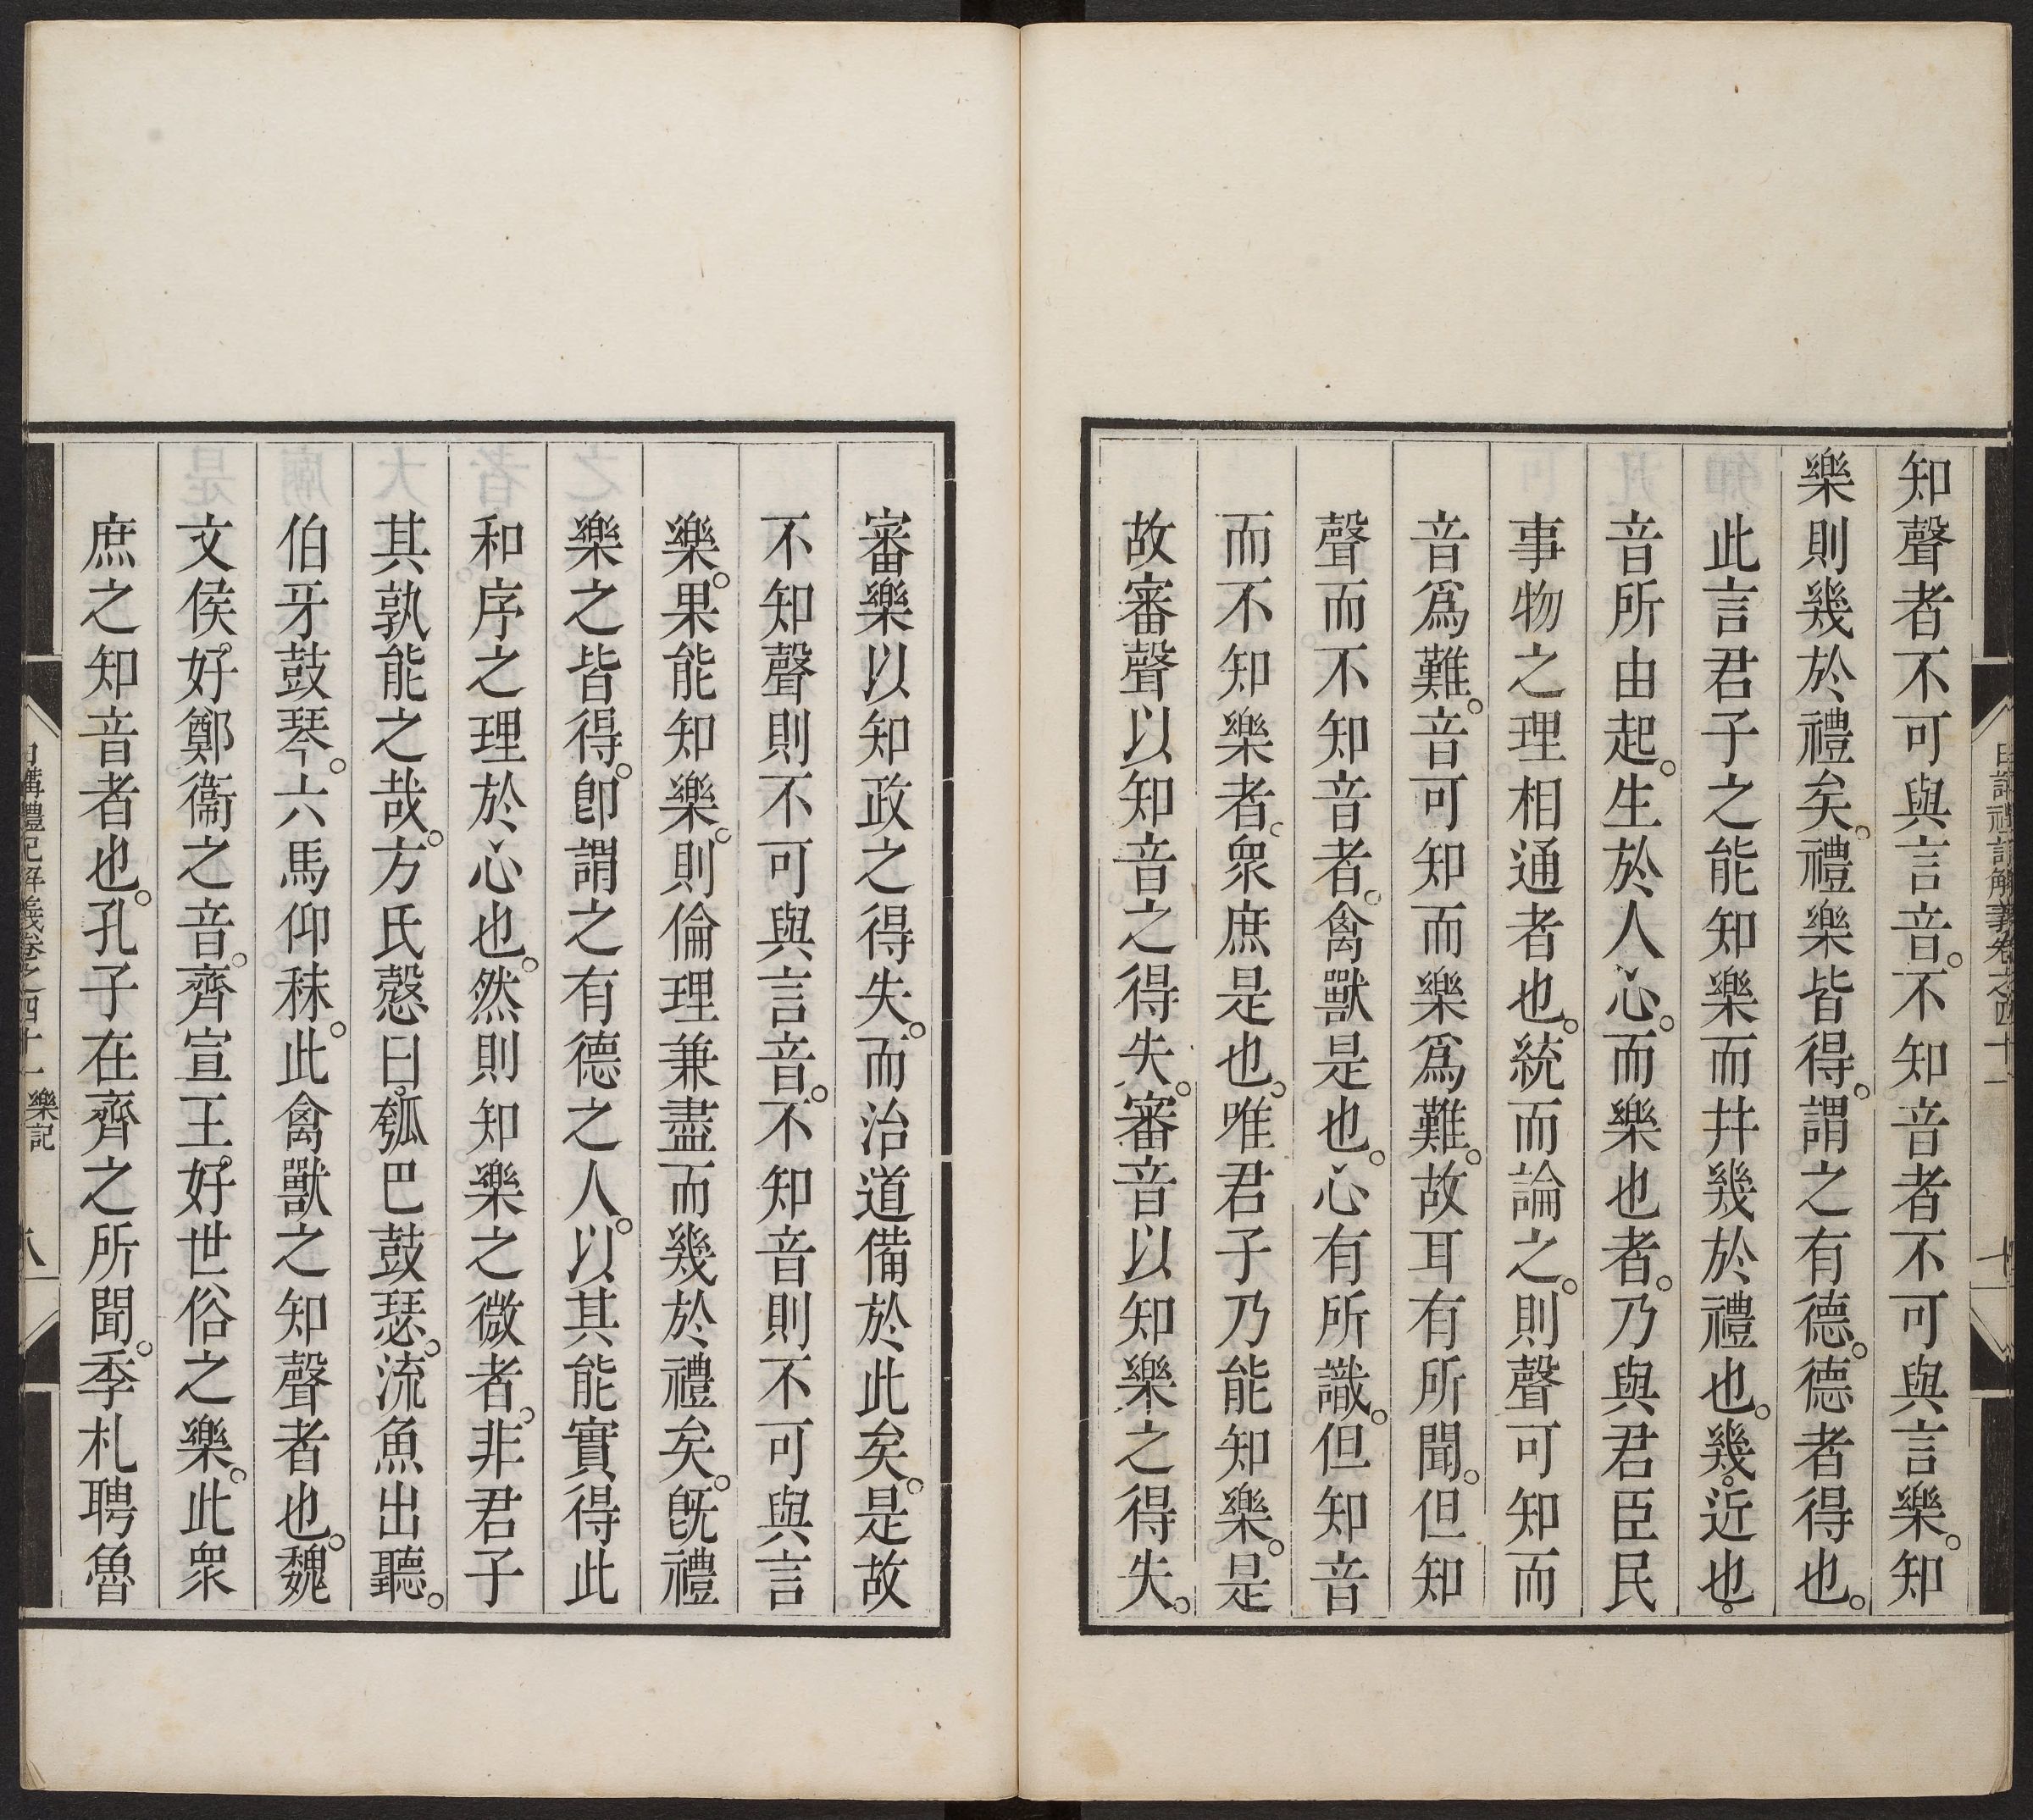 知聲者不可與言音。不知音者不可與言樂。知
樂則幾於禮矣。禮樂皆得。謂之有德。德者得也。
此言君子之能知樂而幷幾於禮也。幾。近也。
音所由起。生於人心。而樂也者。乃與君臣民
事物之理相通者也。統而論之。則聲可知而
音爲難。音可知而樂爲難。故耳有所聞。但知
聲而不知音者。禽獸是也。心有所識。但知音
而不知樂者。衆庶是也。唯君子乃能知樂。是
故審聲以知音之得失。審音以知樂之得失。
審樂以知政之得失。而治道備於此矣。是故
不知聲則不可與言音。不知音則不可與言
樂。果能知樂。則倫理兼盡而幾於禮矣。旣禮
樂之皆得。卽謂之有德之人。以其能實得此
和序之理於心也。然則知樂之微者。非君子
其孰能之哉。方氏慤曰。瓠巴鼓瑟。流魚出聽。
伯牙鼓琴。六馬仰秣。此禽獸之知聲者也。魏
文侯。好鄭衞之音。齊宣王。好世俗之樂。此衆
庶之知音者也。孔子在齊之所聞。季札聘魯
日講禮記解義卷之四十一 樂記 八